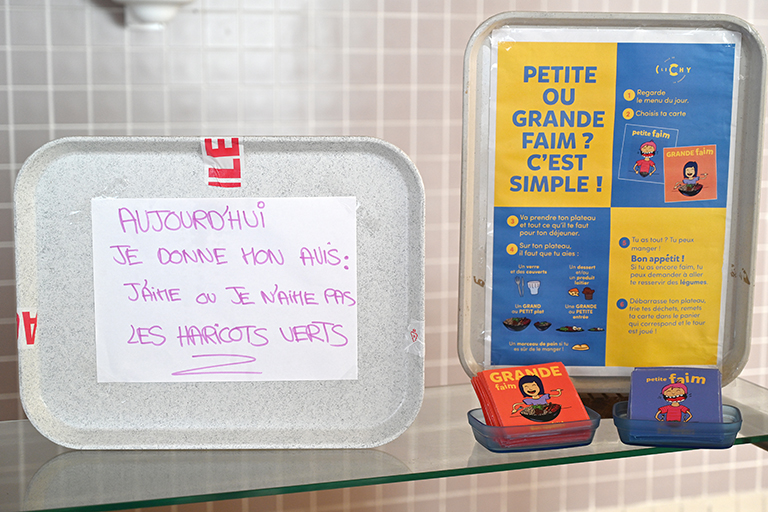 AUJOURD'HUI
JE DONNE MON AVIS:
J'AIME OU JE N'AIME PAS
LES HARICOTS VERTS
ILE
PETITE
OU
GRANDE
FAIM ?
C'EST
SIMPLE !
CLICHY
1 Regarde
le menu du jour.
2 Choisis ta carte
petite faim
GRANDE faim
3 Va prendre ton plateau
et tout ce qu'il te faut
pour ton déjeuner.
4 Sur ton plateau,
il faut que tu aies :
Un verre
et des couverts
Un dessert
et/ou
un produit
laitier
Un GRAND
ou PETIT plat
Une GRANDE
ou PETITE
entrée
Un morceau de pain si tu
es sûr de le manger !
5 Tu as tout ? Tu peux
manger !
Bon appétit !
Si tu as encore faim, tu
peux demander à aller
te resservir des légumes.
6 Débarrasse ton plateau,
trie tes déchets, remets
ta carte dans le panier
qui correspond et le tour
est joué !
GRANDE
faim
petite faim